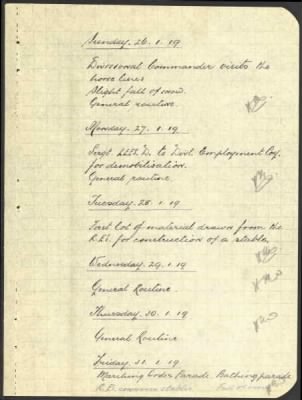 Sunday. 26. 1. 19
Divisional Commander visits the
horse lines
Slight fall of snow.
General routine.
Monday. 27. 1. 19
Sergt to Divl. Employment Coy.
for demobilisation.
General routine.
Tuesday. 28. 1. 19
First lot of material drawn from the
R.E's. for construction of a stable.
Wednesday. 29. 1. 19
General Routine.
Thursday. 30. 1. 19
General Routine
Friday. 31. 1. 19
Marching Order Parade. Bathing parade
R.E. commence stables Fall of snow